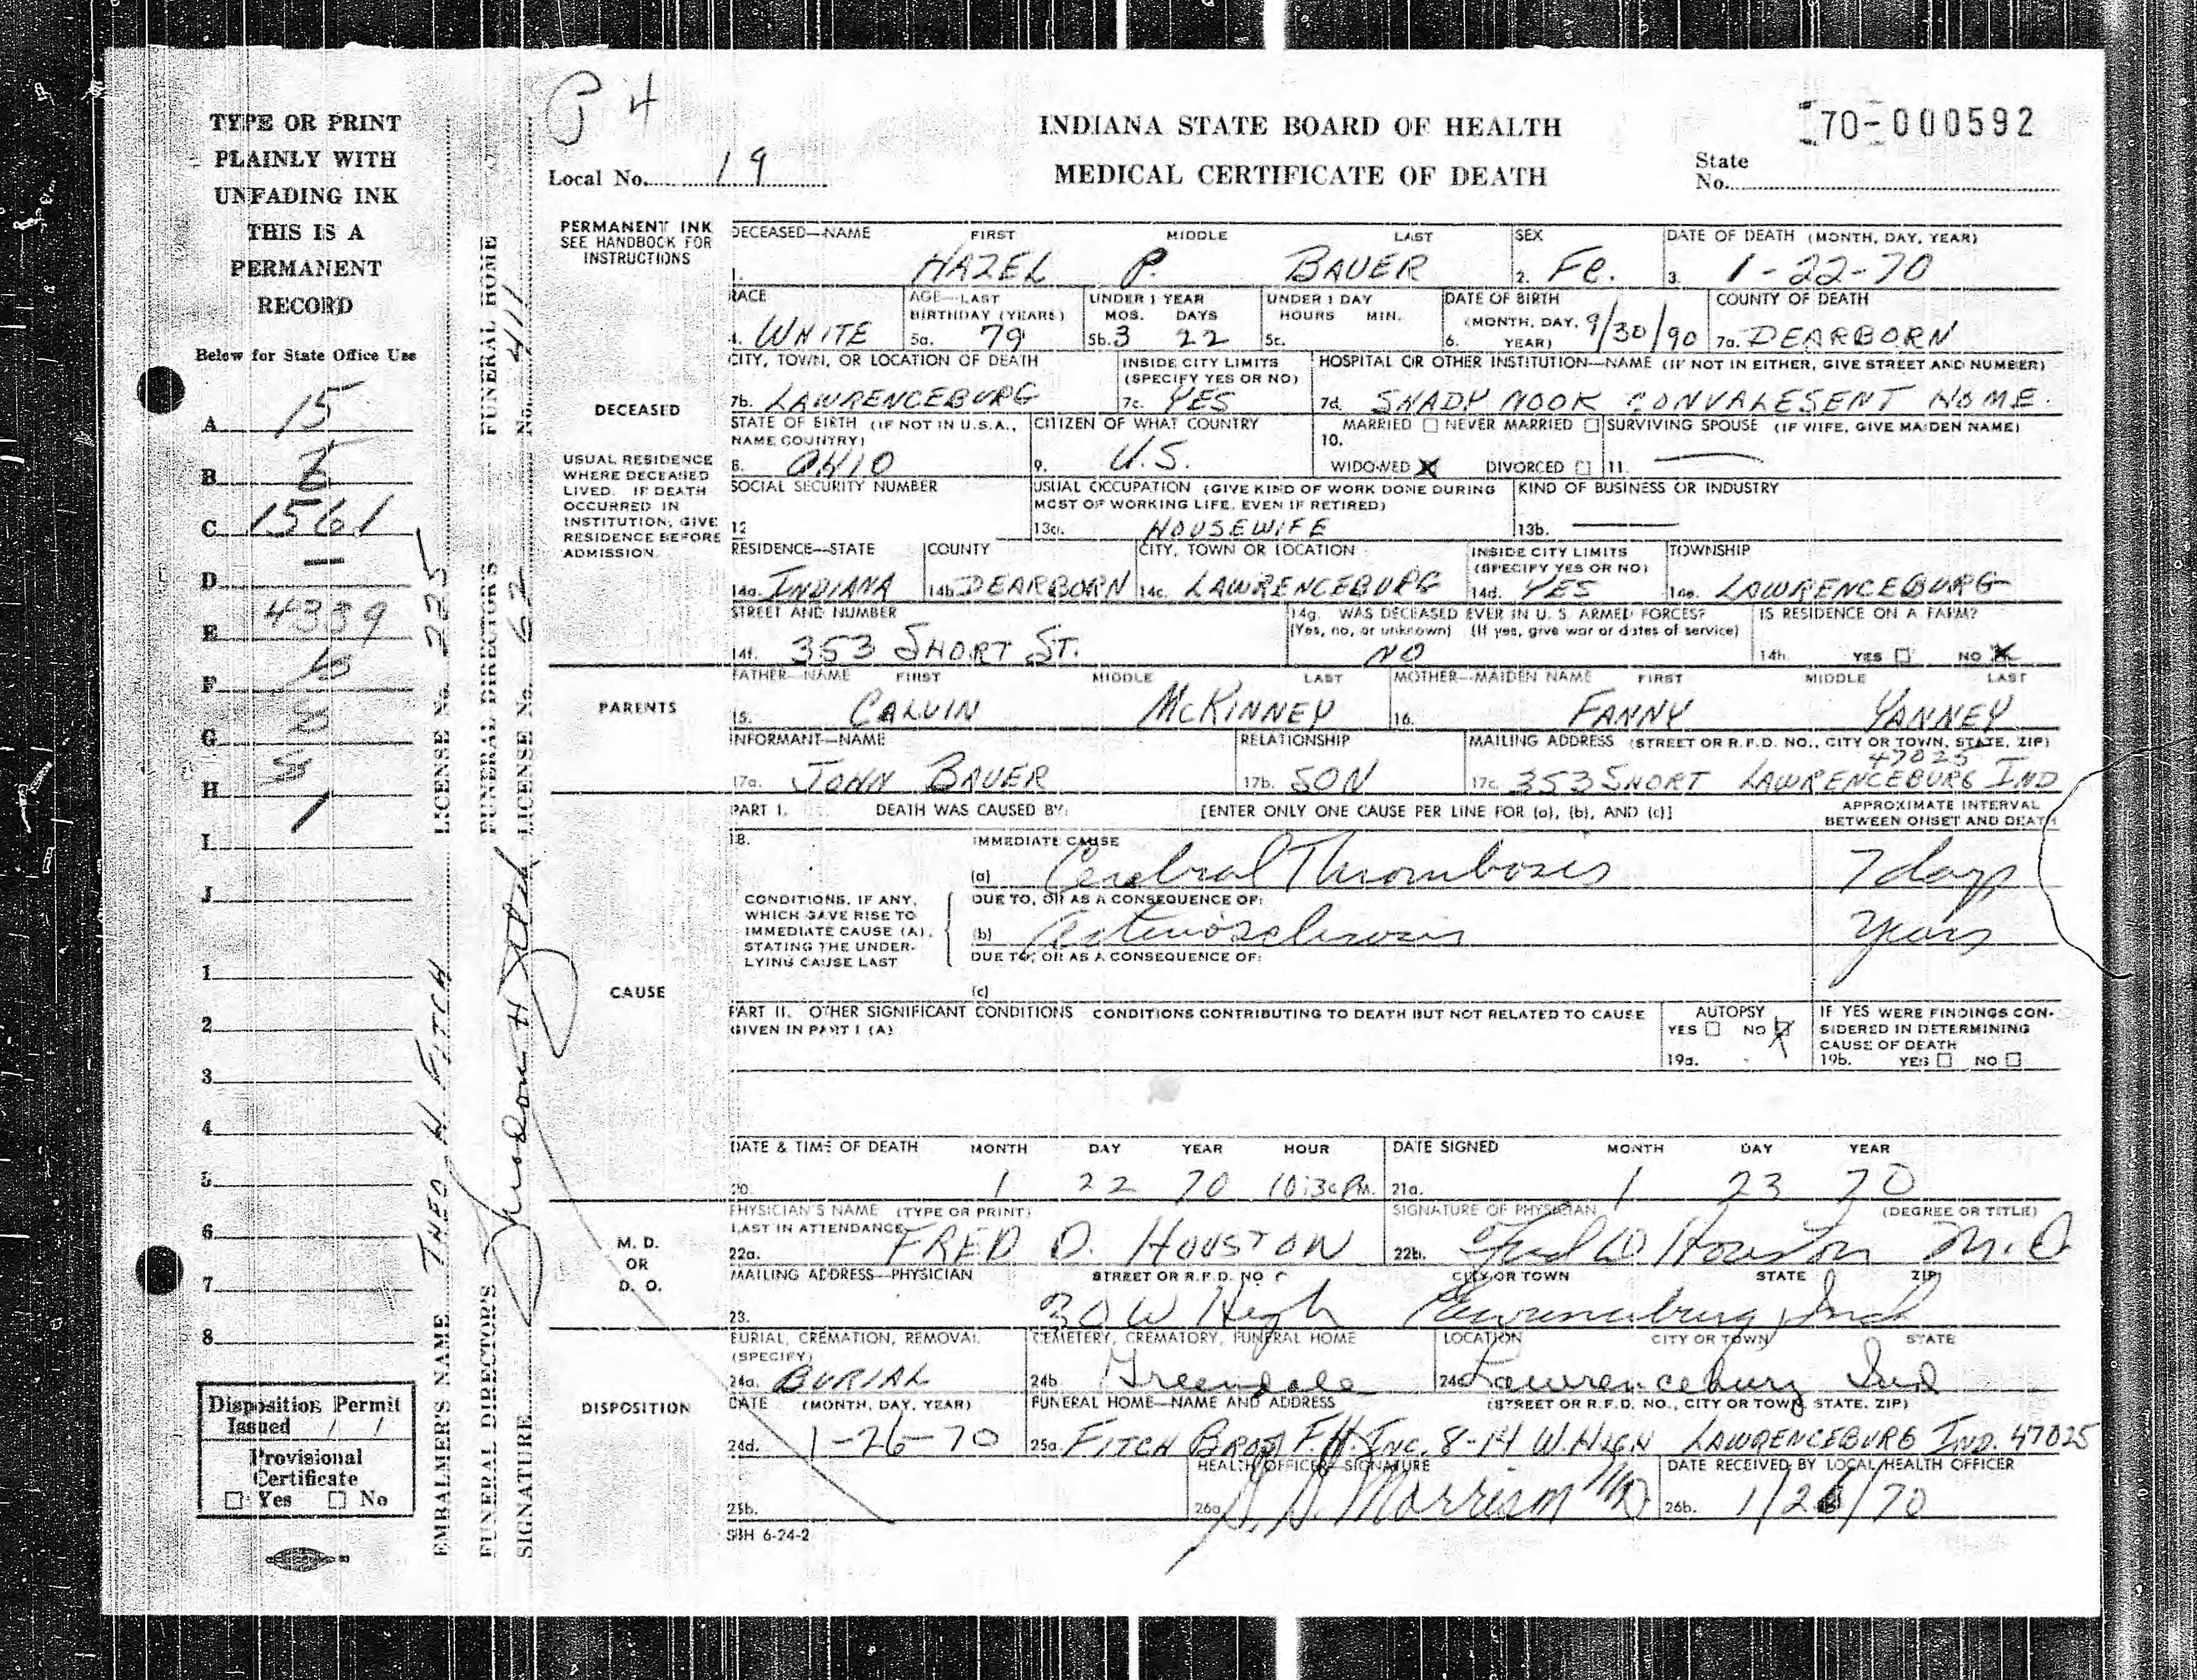 P 4
INDIANA STATE BOARD OF HEALTH
MEDICAL CERTIFICATE OF DEATH
70-000592
Local No. 19
State No.
TYPE OR PRINT
PLAINLY WITH
UNFADING INK
THIS IS A
PERMANENT
RECORD
Below for State Office Use
A 15
B
C 1561
D —
E 4339
F
G
H
I
J
1
2
3
4
5
6
7
8
Disposition Permit
Issued / /
Provisional
Certificate
☐ Yes ☐ No
EMBALMER'S NAME THEO. H. FITCH LICENSE No. 225
FUNERAL DIRECTOR'S FUNERAL DIRECTOR'S FUNERAL HOME
SIGNATURE LICENSE No. 62 No. 411
PERMANENT INK
SEE HANDBOOK FOR
INSTRUCTIONS
DECEASED
USUAL RESIDENCE
WHERE DECEASED
LIVED. IF DEATH
OCCURRED IN
INSTITUTION, GIVE
RESIDENCE BEFORE
ADMISSION.
DECEASED—NAME FIRST MIDDLE LAST SEX DATE OF DEATH (MONTH, DAY, YEAR)
1. HAZEL P. BAUER 2. Fe. 3. 1-22-70
RACE AGE—LAST BIRTHDAY (YEARS) UNDER 1 YEAR MOS. DAYS UNDER 1 DAY HOURS MIN. DATE OF BIRTH (MONTH, DAY, YEAR) COUNTY OF DEATH
4. WHITE 5a. 79 5b. 3 22 5c. 6. 9/30/90 7a. DEARBORN
CITY, TOWN, OR LOCATION OF DEATH INSIDE CITY LIMITS (SPECIFY YES OR NO) HOSPITAL OR OTHER INSTITUTION—NAME (IF NOT IN EITHER, GIVE STREET AND NUMBER)
7b. LAWRENCEBURG 7c. YES 7d. SHADY NOOK CONVALESENT HOME.
STATE OF BIRTH (IF NOT IN U.S.A., NAME COUNTRY) CITIZEN OF WHAT COUNTRY MARRIED ☐ NEVER MARRIED ☐ SURVIVING SPOUSE (IF WIFE, GIVE MAIDEN NAME)
8. OHIO 9. U.S. 10. WIDOWED ☒ DIVORCED ☐ 11. —
SOCIAL SECURITY NUMBER USUAL OCCUPATION (GIVE KIND OF WORK DONE DURING MOST OF WORKING LIFE, EVEN IF RETIRED) KIND OF BUSINESS OR INDUSTRY
12 13a. HOUSEWIFE 13b. —
RESIDENCE—STATE COUNTY CITY, TOWN OR LOCATION INSIDE CITY LIMITS (SPECIFY YES OR NO) TOWNSHIP
14a. INDIANA 14b. DEARBORN 14c. LAWRENCEBURG 14d. YES 14e. LAWRENCEBURG
STREET AND NUMBER 14g. WAS DECEASED EVER IN U. S. ARMED FORCES? IS RESIDENCE ON A FARM?
(Yes, no, or unknown) (If yes, give war or dates of service)
14f. 353 SHORT ST. NO 14h. YES ☐ NO ☒
PARENTS
FATHER—NAME FIRST MIDDLE LAST MOTHER—MAIDEN NAME FIRST MIDDLE LAST
15. CALVIN McKINNEY 16. FANNY YANNEY
INFORMANT—NAME RELATIONSHIP MAILING ADDRESS (STREET OR R.F.D. NO., CITY OR TOWN, STATE, ZIP)
47025
17a. JOHN BAUER 17b. SON 17c. 353 SHORT LAWRENCEBURG IND
PART I. DEATH WAS CAUSED BY: [ENTER ONLY ONE CAUSE PER LINE FOR (a), (b), AND (c)] APPROXIMATE INTERVAL BETWEEN ONSET AND DEATH
CAUSE
18. IMMEDIATE CAUSE
(a) Cerebral Thrombosis 7 days
CONDITIONS, IF ANY,
WHICH GAVE RISE TO
IMMEDIATE CAUSE (A),
STATING THE UNDER-
LYING CAUSE LAST
DUE TO, OR AS A CONSEQUENCE OF:
(b) Arteriosclerosis years
DUE TO, OR AS A CONSEQUENCE OF:
(c)
PART II. OTHER SIGNIFICANT CONDITIONS CONDITIONS CONTRIBUTING TO DEATH BUT NOT RELATED TO CAUSE GIVEN IN PART I (A)
AUTOPSY YES ☐ NO ☒
19a.
IF YES WERE FINDINGS CON-
SIDERED IN DETERMINING
CAUSE OF DEATH
19b. YES ☐ NO ☐
DATE & TIME OF DEATH MONTH DAY YEAR HOUR DATE SIGNED MONTH DAY YEAR
20. 1 22 70 10:30 PM. 21a. 1 23 70
M. D.
OR
D. O.
PHYSICIAN'S NAME (TYPE OR PRINT) LAST IN ATTENDANCE SIGNATURE OF PHYSICIAN (DEGREE OR TITLE)
22a. FRED D. HOUSTON 22b. Fred D Houston M.D.
MAILING ADDRESS—PHYSICIAN STREET OR R.F.D. NO. CITY OR TOWN STATE ZIP
23. 30 W High Lawrenceburg, Ind
DISPOSITION
BURIAL, CREMATION, REMOVAL (SPECIFY) CEMETERY, CREMATORY, FUNERAL HOME LOCATION CITY OR TOWN STATE
24a. BURIAL 24b. Greendale 24c. Lawrenceburg Ind
DATE (MONTH, DAY, YEAR) FUNERAL HOME—NAME AND ADDRESS (STREET OR R.F.D. NO., CITY OR TOWN, STATE, ZIP)
24d. 1-26-70 25a. FITCH BROS F.H. INC. 8-14 W. HIGH LAWRENCEBURG IND. 47025
HEALTH OFFICER—SIGNATURE DATE RECEIVED BY LOCAL HEALTH OFFICER
25b. 26a. Morrison MD. 26b. 1/26/70
SBH 6-24-2